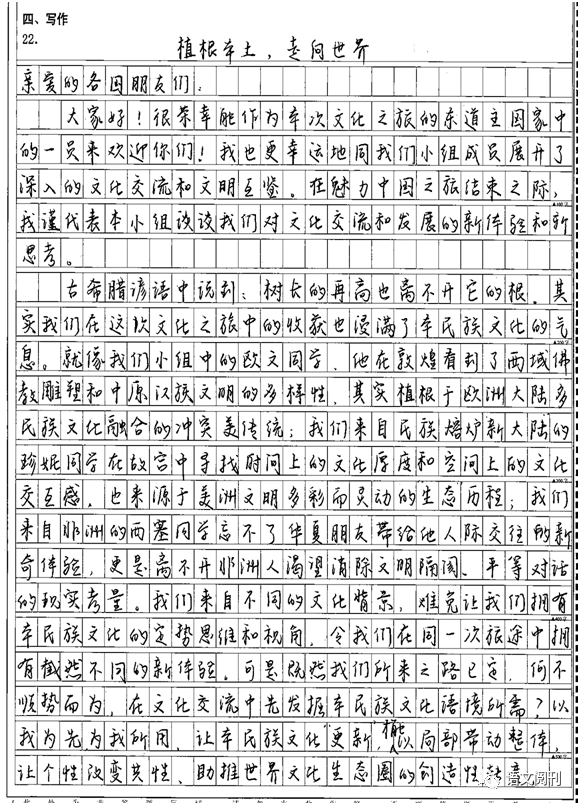 四、写作
22.
植根本土，走向世界
亲爱的各国朋友们：
大家好！很荣幸能作为本次文化之旅的东道主国家中
的一员来欢迎你们！我也更幸运地同我们小组成员展开了
深入的文化交流和文明互鉴。在魅力中国之旅结束之际，
我谨代表本小组谈谈我们对文化交流和发展的新体验和新
思考。
古希腊谚语中说到：树长的再高也离不开它的根。其
实我们在这次文化之旅中的收获也浸满了本民族文化的气
息。就像我们小组中的欧文同学，他在敦煌看到了西域佛
教雕塑和中原汉族文明的多样性，其实植根于欧洲大陆多
民族文化融合的冲突美传统；我们来自民族熔炉新大陆的
珍妮同学在故宫中寻找时间上的文化厚度和空间上的文化
交互感，也来源于美洲文明多彩而灵动的生态历程；我们
来自非洲的西塞同学忘不了华夏朋友带给他人际交往的新
奇体验，更是离不开非洲人渴望消除文明隔阂、平等对话
的现实考量。我们来自不同的文化情景，难免让我们拥有
本民族文化的定势思维和视角，令我们在同一次旅途中拥
有截然不同的新体验。可是既然我们所来之路已定，何不
顺势而为，在文化交流中先发掘本民族文化语境所需？以
我为先为我所用，让本民族文化"更新"，以局部带动整体，
让个性改变共性、助推世界文化生态圈的创造性
语文阅刊